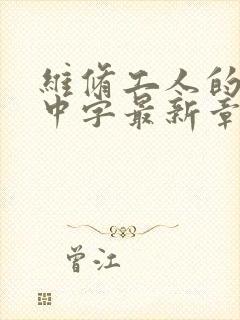 維脩工人的
中字最新章
曾江